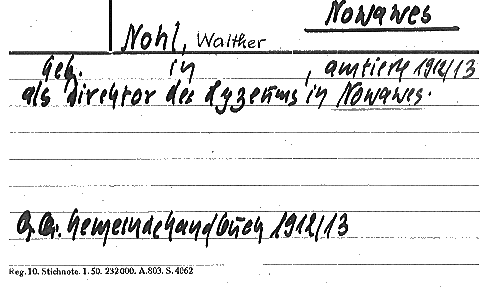 Nowawes
Nohl, Walther
geb. in , amtierte 1912/13
als Direktor des Lyzeums in Nowawes.
Gemeindehandbuch 1912/13
Reg. 10. Stichnote. 1. 50. 232000. A.803. S. 4062